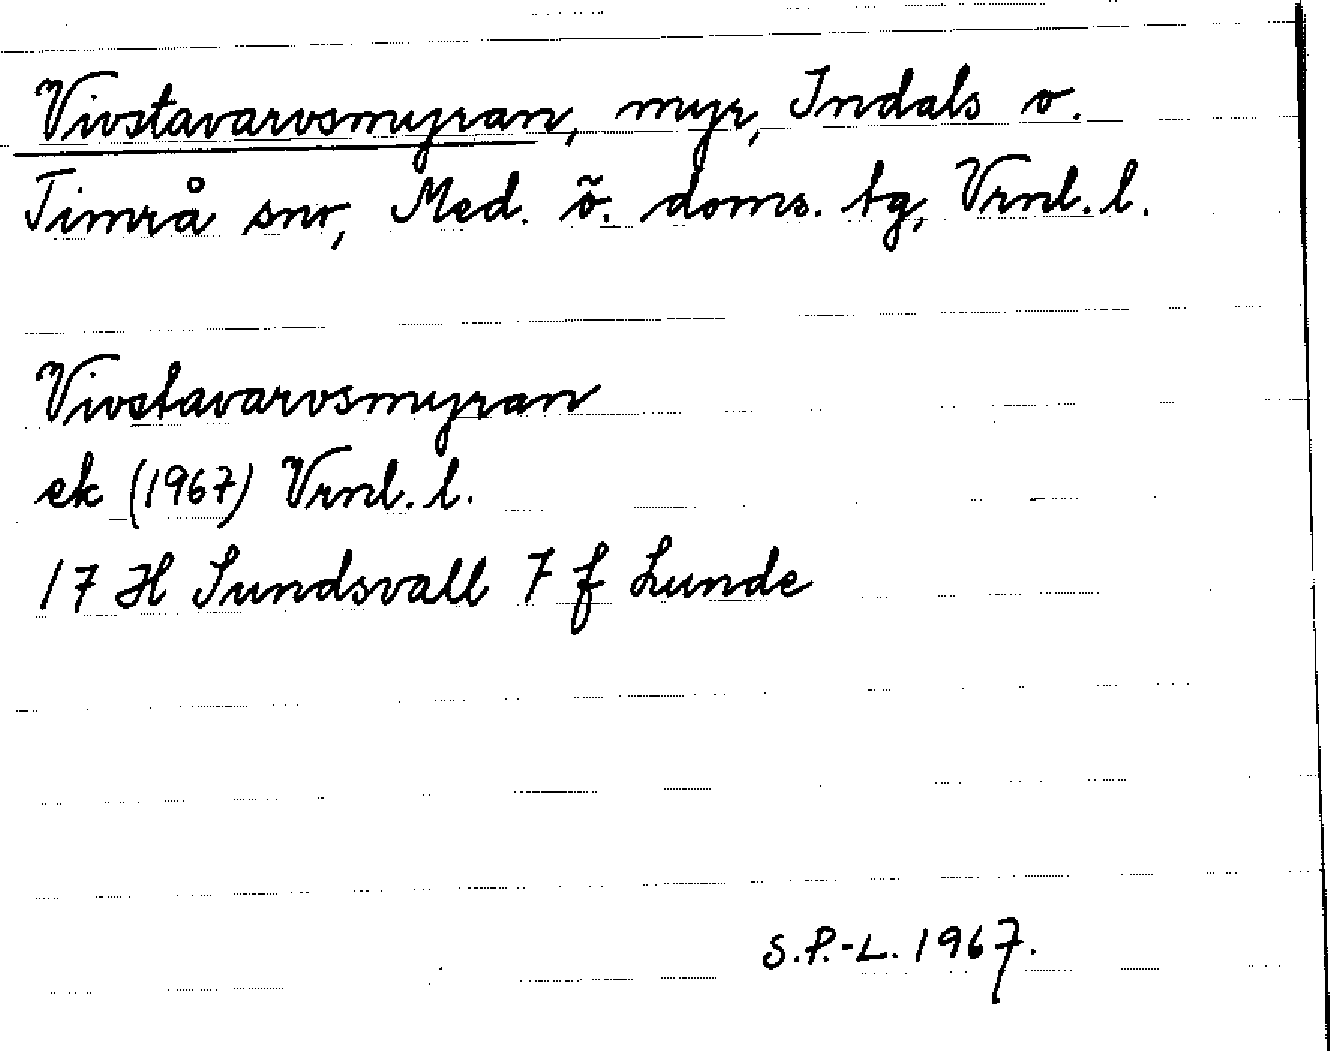 Vivstavarvsmyran, myr, Indals o.
Timrå snr, Med. ö. doms. tg, Vrnl. l.
Vivstavarvsmyran
ek (1967) Vrnl. l.
17 H Sundsvall 7 f Lunde
S.P.-L. 1967.